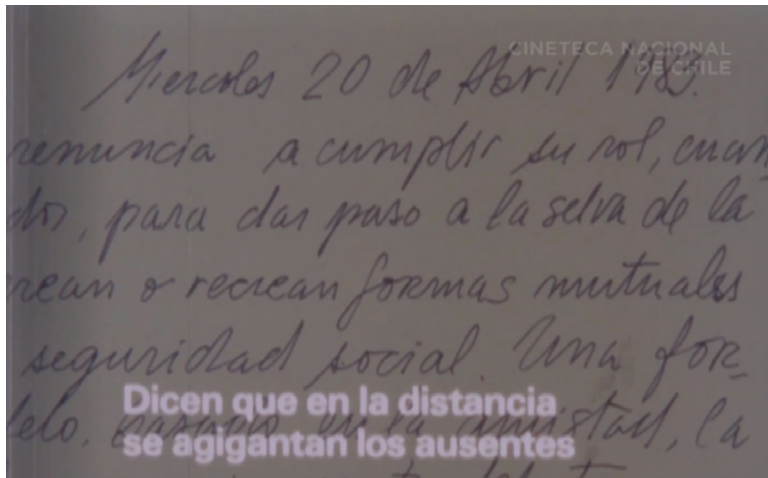 CINETECA NACIONAL
DE CHILE
Miercoles 20 de Abril
renuncia a cumplir su rol, cuan
dos, para dar paso a la selva de la
crean o recrean formas mutuales
seguridad social. Una for-
delo, basado en la amistad, la
Dicen que en la distancia
se agigantan los ausentes